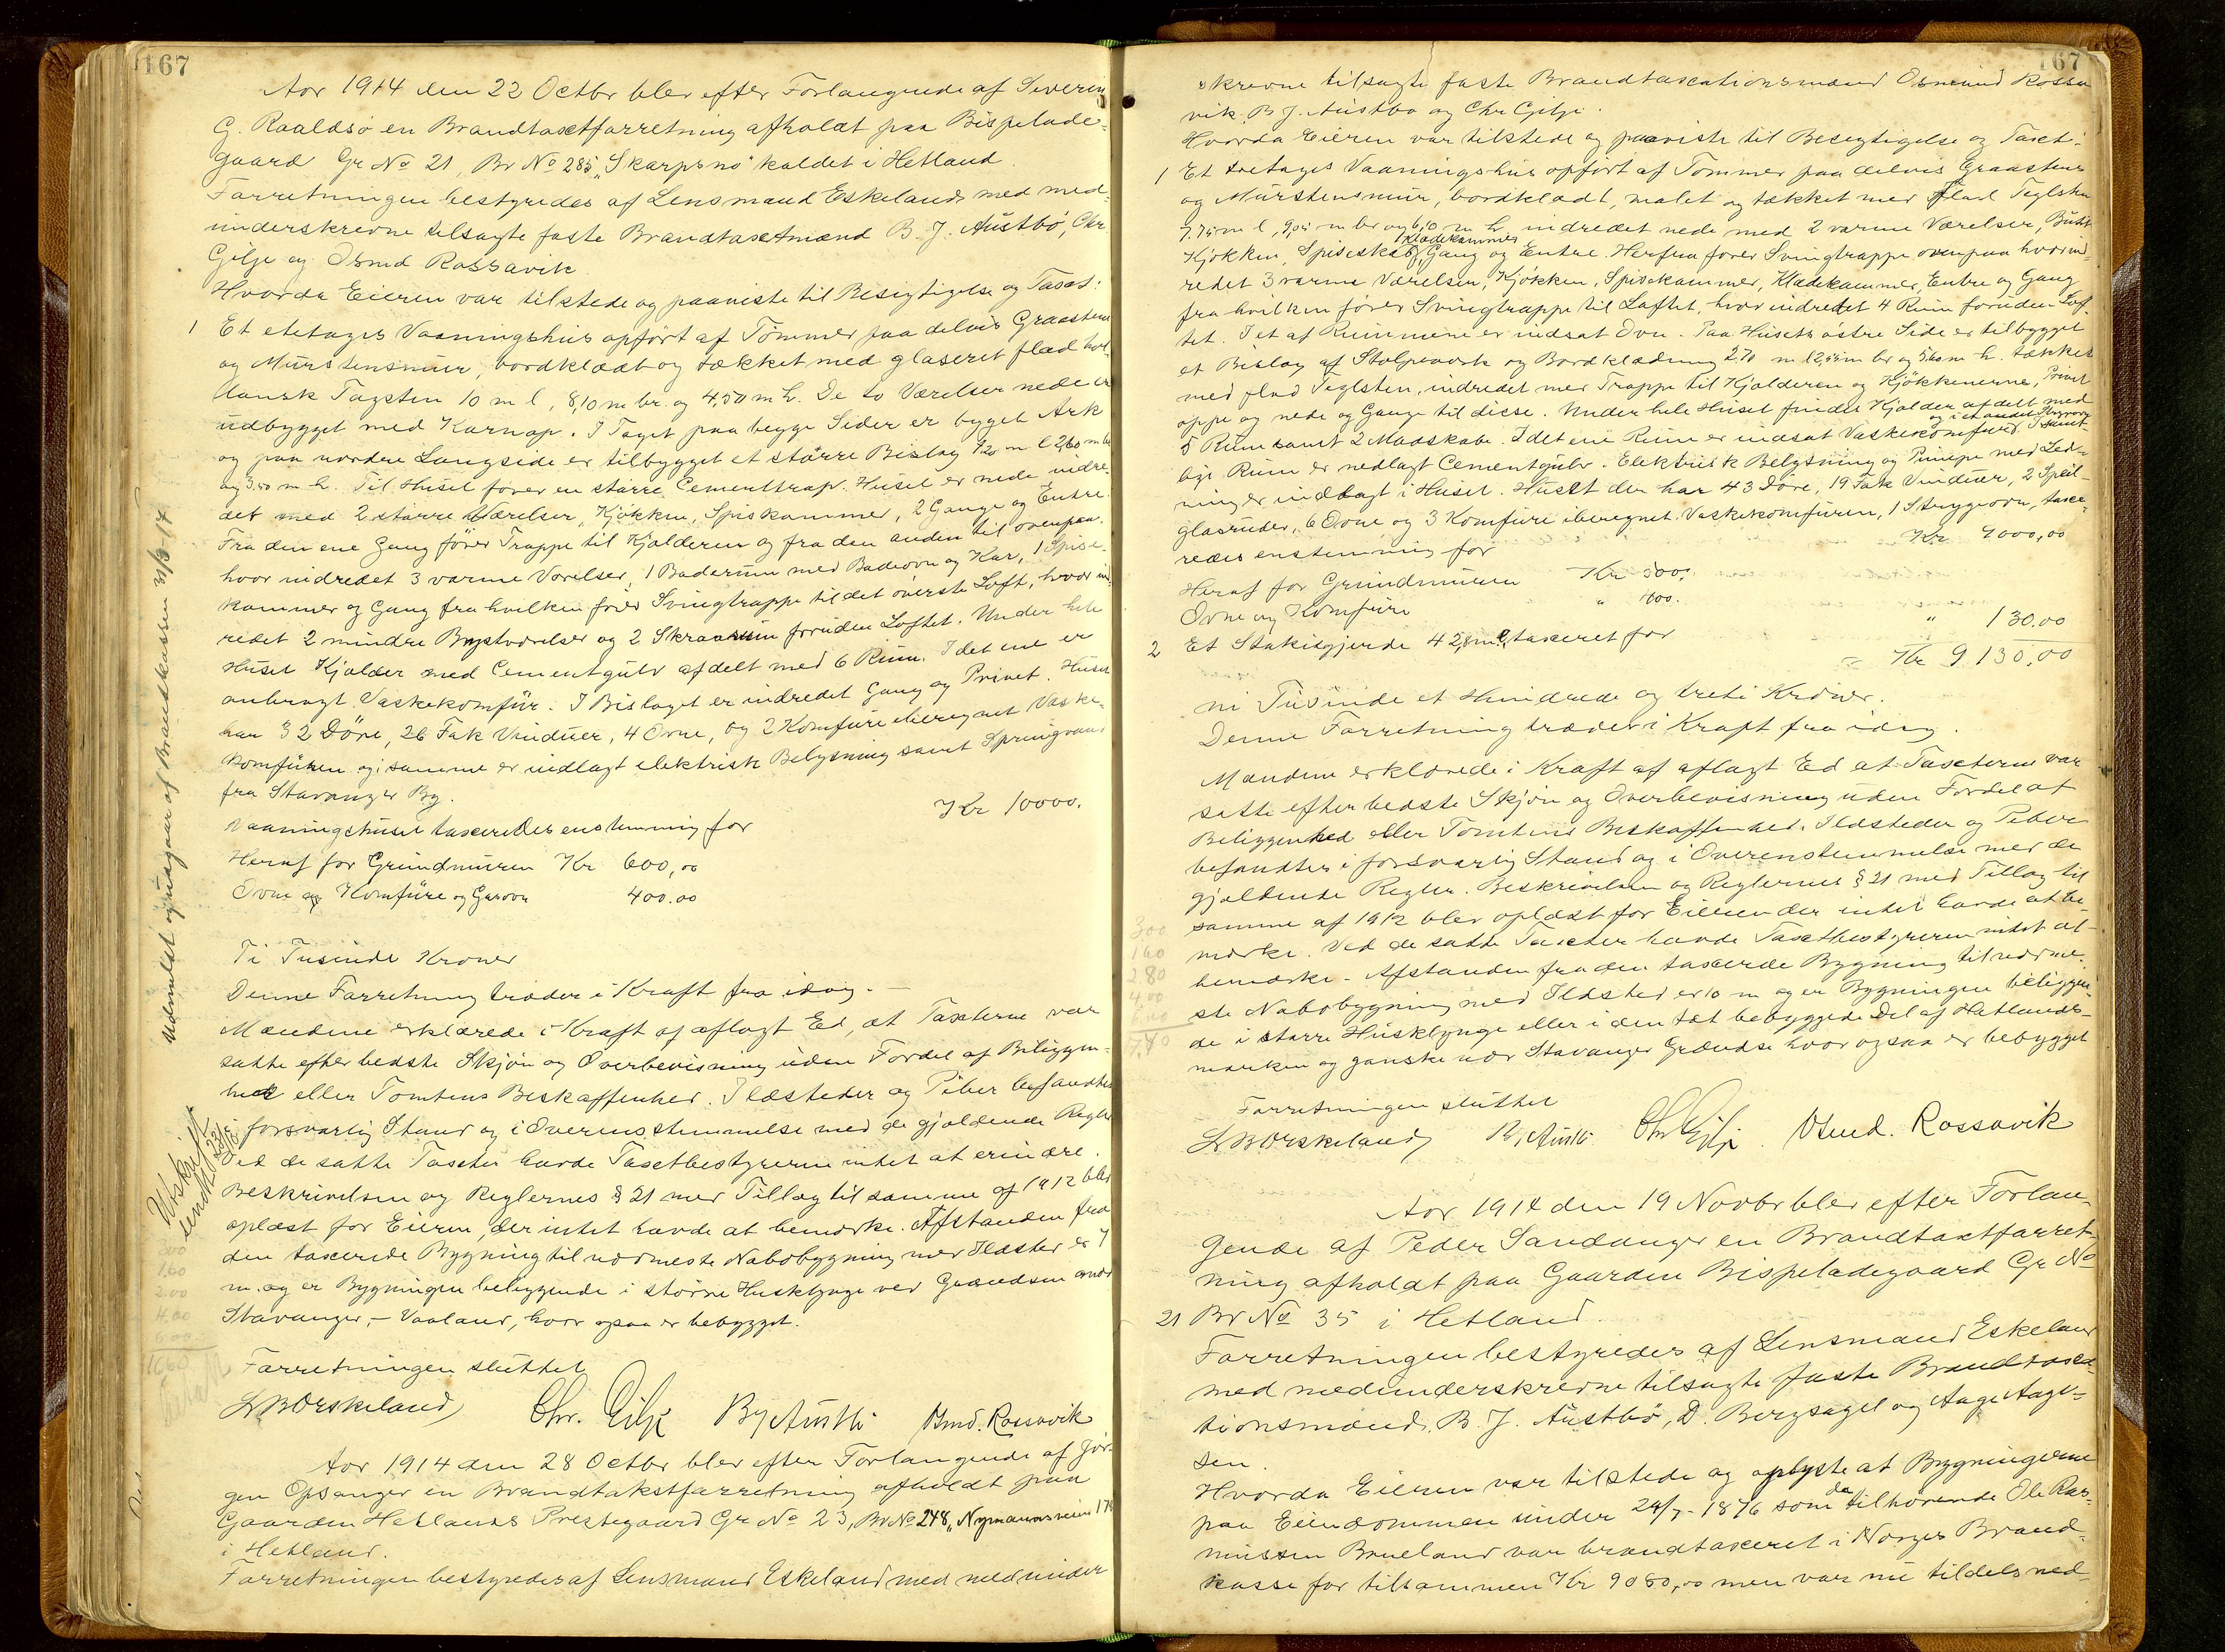 167
Aar 1914 den 22 Octbr blev efter Forlangende af Severin
G. Raaldsø en Brandtaxtforretning afholdt paa Bispelade-
gaard Gr No 21, Br No 285 "Skarpsno" kaldet i Hetland.
Forretningen bestyredes af Lensmand Eskeland med med-
underskrevne tilsagte faste Brandtaxtmænd B. J. Austbö, Chr
Gilje og Osmd Rossavik
Hvorda Eieren var tilstede og paaviste til Besigtigelse og Taxt:
1 Et etetages Vaaningshus opført af Tømmer paa delvis Graastens
og Murstensmur, bordklædt og tækket med glaseret flad hol-
landsk Tagsten 10 m l, 8,10 m br. og 4,50 m h. De to Værelser nede er
udbygget med Karnap. I Taget paa begge Sider er bygget Ark
og paa nordre Langside er tilbygget et større Bislag 7,20 m l 2,60 m br
og 3,50 m h. Til Huset fører en større Cementtrap. Huset er nede indre-
det med 2 større Værelser, Kjøkken, Spiskammer, 2 Gange og Entre.
Fra den ene Gang fører Trappe til Kjælderen og fra den anden til ovenpaa.
hvor indredet 3 varme Værelser, 1 Baderum med Badeovn og Kar, 1 Spise-
kammer og Gang fra hvilken fører Svingtrappe til det øverste Loft, hvor ind-
redet 2 mindre Brystværelser og 2 Skraarum foruden Loftet. Under hele
Huset Kjælder med Cementgulv afdelt med 6 Rum. I det ene er
anbragt Vaskekomfür. I Bislaget er indredet Gang og Privet. Huset
har 32 Döre, 26 Fak Vinduer, 4 Ovne, og 2 Komfure iberegnet Vaske-
komfüren og i samme er indlagt elektrisk Belysning samt Springvand
fra Stavanger By.
Vaaningshuset taxeredes enstemmig for Kr 10000.
Heraf for Grundmuren Kr 600,00
Ovne og Komfüre og Garovn 400.00
Ti Tusinde Kroner
Denne Forretning træder i Kraft fra idag. –
Mændene erklærede i Kraft af aflagt Ed, at Taxterne var
satte efter bedste Skjøn og Overbevisning uden Fordel af Beliggen-
hed eller Tomtens Beskaffenhed. Ildsteder og Piber befandtes
i forsvarlig Stand og i Overensstemmelse med de gjældende Regler
Ved de satte Taxter havde Taxtbestyreren intet at erindre.
Beskrivelsen og Reglernes § 21 med Tillæg til samme af 1912 blev
oplæst for Eieren, der intet havde at bemærke. Afstanden fra
den taxerede Bygning til nærmeste Nabobygning med Ildsted er 7
m. og er Bygningen beliggende i større Husklynge ved Grændsen mod
Stavanger, – Vaaland, hvor ogsaa er bebygget.
Forretningen sluttet
Chr. Gilje B J Austbö Osmd. Rossavik
Aar 1914 den 28 Octbr blev efter Forlangende af Jör-
gen Opsanger en Brandtakstforretning afholdt paa
Gaarden Hetlands Prestegaard Gr No 23, Br No 248, "Nymannsveien 17
i Hetland.
Forretningen bestyredes af Lensmand Eskeland med medunder
Udmeldt og udgaar af Brandskassen 31/3-17
Utskrift
sendt 23/
167
skrevne tilsagte faste Brandtaxationsmænd Osmund Rossa
vik, B J. Austbø og Chr Gilje.
Hvorda Eieren var tilstede og paaviste til Besegtigelse og Taxt:
1 Et toetages Vaaningshus opført af Tømmer paa delvis Graastens
og Mürstensmür, bordklædt, malet og tækket med flad Teglsten
9,75 m l, 9,05 m br og 6,10 m h indredet nede med 2 varme Værelser,
Kjøkken, Spiseskab, 1 Klædekammer, Gang og Entre. Herfra fører Svingtrappe ovenpaa hvor ind-
redet 3 varme Værelser, Kjøkken, Spisekammer, Klædekammer, Entre og Gang
fra hvilken fører Svingtrappe til Loftet, hvor indredet 4 Rum foruden Lof-
tet. I et af Rummene er indsat Ovn. Paa Husets østre Side er tilbygget
et Bislag af Stolpeverk og Bordklædning 2,70 m l 2,55 m br og 5,60 m h. tækket
med flad Teglsten, indredet med Trappe til Kjælderen og Kjökkenerne, Privet
oppe og nede og Gange til disse. Under hele Huset findes Kjælder afdelt med
5 Rum samt 2 Madskabe. I det ene Rum er indsat Vaskekomfur og i et andet Strygeovn I samt-
lige Rum er nedlagt Cementgulv. Elektrisk Belysning og Pumpe med Led-
ning er indlagt i Huset. Huset der har 43 Döre, 19 Fak Vinduer, 2 Speil-
glasruder, 6 Ovne og 3 Komfure iberegnet Vaskekomfuren, 1 Strygeovn, taxe-
redes enstemmig for Kr 9000,00
Heraf for Grundmuren Kr 500.
Ovne og Komfüre " 400.
2 Et Stakitgjerde 42,8 m l, taxeret for " 130.00
= Kr 9130,00
ni Tusinde et Hundrede og treti Kroner.
Denne Forretning træder i Kraft fra idag.
Mændene erklærede i Kraft af aflagt Ed at Taxterne var
satte efter bedste Skjøn og Overbevisning uden Fordel af
Beliggenhed eller Tomtens Beskaffenhed. Ildsteder og Piber
befandtes i forsvarlig Stand og i Overensstemmelse med de
gjældende Regler. Beskrivelsen og Reglernes § 21 med Tillæg til
samme af 1912 blev oplæst for Eieren der intet havde at be-
mærke. Ved de satte Taxter havde Taxtbestyreren intet at
bemærke. Afstanden fra den taxerede Bygning til nærme-
ste Nabobygning med Ildsted er 10 m og er Bygningen beliggen-
de i større Husklynge eller i den tæt bebyggede Del af Hetlands-
marken og ganske nær Stavanger Grændse hvor ogsaa er bebygget
Forretningen sluttet
B J Austbö Chr Gilje Osmd. Rossavik
Aar 1914 den 19 Novbr blev efter Forlan-
gende af Peder Sandanger en Brandtaxtforret-
ning afholdt paa Gaarden Bispeladegaard Gr No
21 Br No 35 i Hetland.
Forretningen bestyredes af Lensmand Eskeland
med medunderskrevne tilsagte faste Brandtaxa-
tionsmænd, B. J. Austbö, D. Bergsagel og Aage Aage-
sen.
Hvorda Eieren var tilstede og oplyste at Bygningerne
paa Eiendommen under 24/7-1876 som da tilhørende Ole Ras-
mussen Brueland var brandtaxeret i Norges Brand-
kasse for tilsammen Kr 9080,00 men var nu tildels ned-